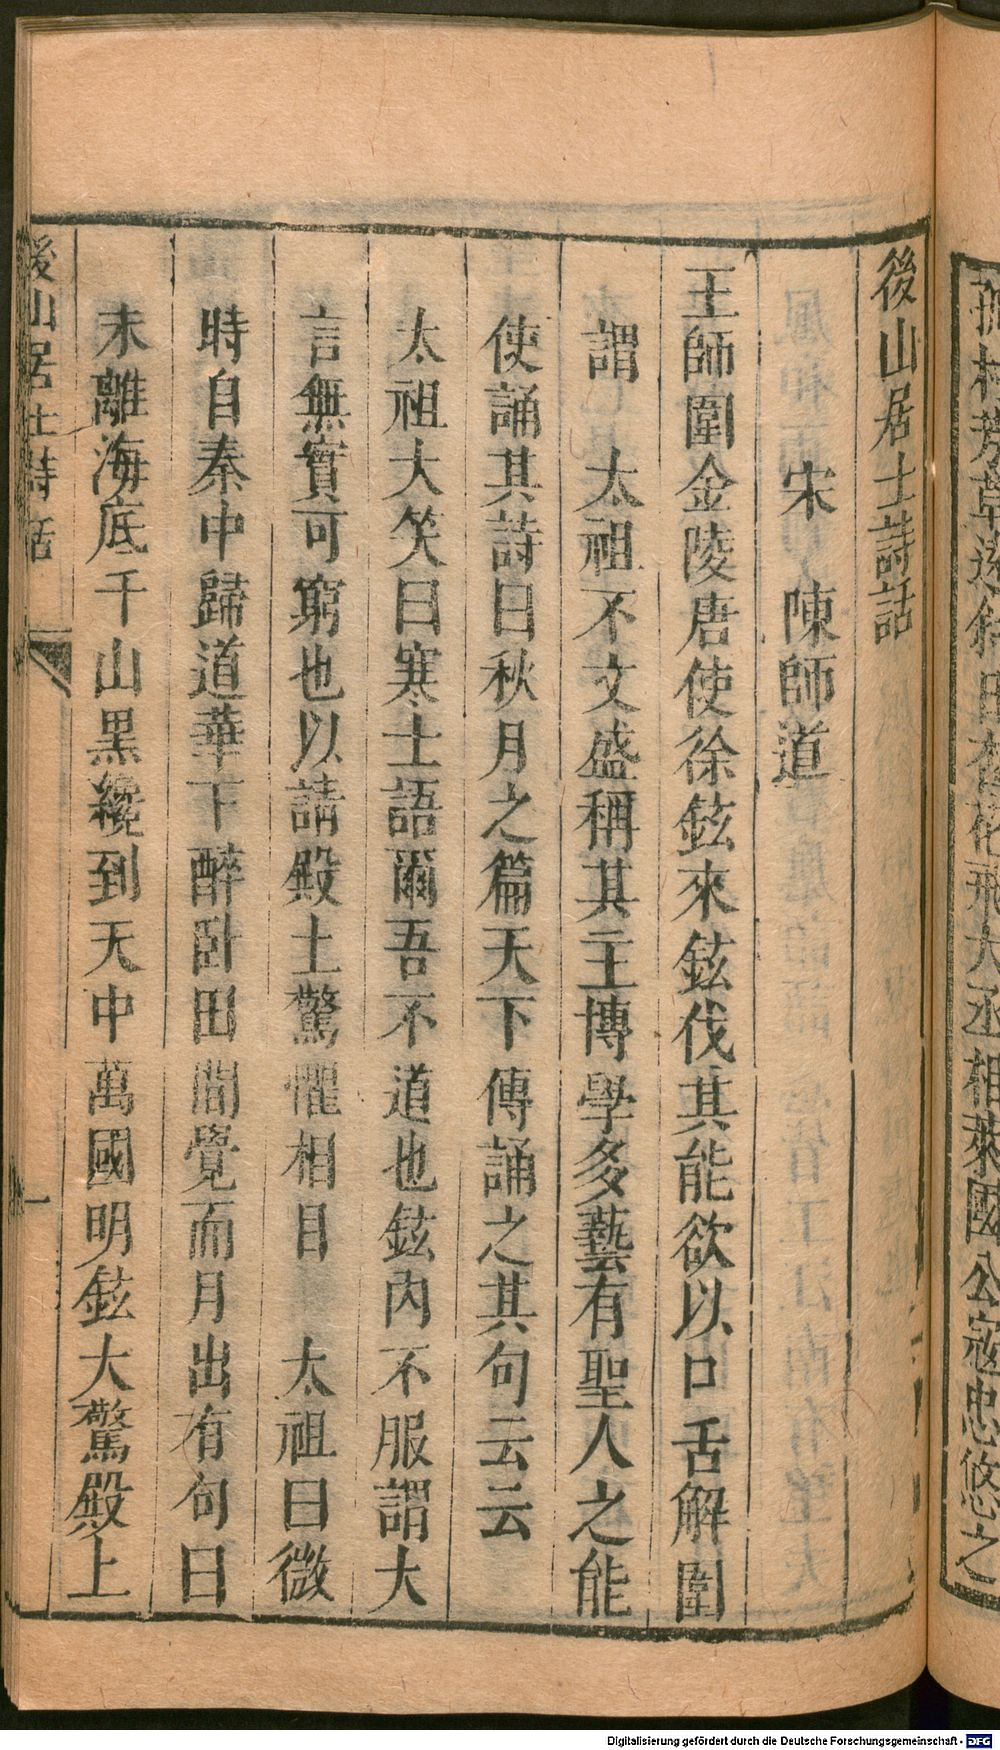 孤村芳草遠斜日杏花飛大丞相萊國公寇忠愍之
後山居士詩話
宋 陳師道
王師圍金陵唐使徐鉉來鉉伐其能欲以口舌解圍
謂 太祖不文盛稱其主博學多藝有聖人之能
使誦其詩曰秋月之篇天下傳誦之其句云云
太祖大笑曰寒士語爾吾不道也鉉內不服謂大
言無實可窮也以請殿上驚懼相目 太祖曰微
時自秦中歸道華下醉臥田間覺而月出有句曰
未離海底千山黑纔到天中萬國明鉉大驚殿上
後山居士詩話 一
Digitalisierung gefördert durch die Deutsche Forschungsgemeinschaft - DFG